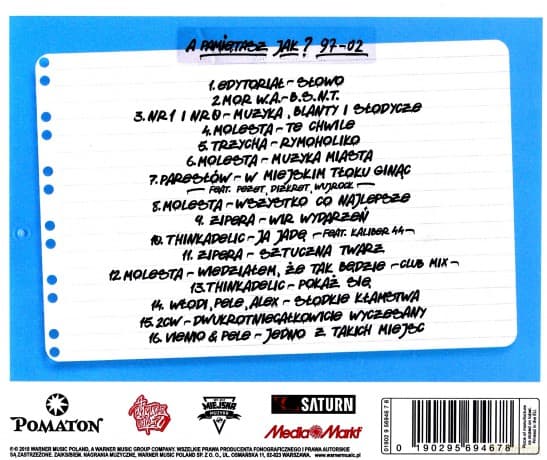 A PAMIĘTASZ JAK? 97-02
1. EDYTORIAŁ - SŁOWO
2. MOR W.A. - B.S.N.T.
3. NR 1 I NR 0 - MUZYKA, BLANTY I SŁODYCZE
4. MOLESTA - TE CHWILE
5. TRZYCHA - RYMOHOLIKO
6. MOLESTA - MUZYKA MIASTA
7. PARESŁÓW - W MIEJSKIM TŁOKU GINĄC
- FEAT. PEZET, DIZKRET, WUJROCK -
8. MOLESTA - WSZYSTKO CO NAJLEPSZE
9. ZIPERA - WIR WYDARZEŃ
10. THINKADELIC - JA JADĘ - FEAT. KALIBER 44 -
11. ZIPERA - SZTUCZNA TWARZ
12. MOLESTA - WIEDZIAŁEM, ŻE TAK BĘDZIE - CLUB MIX -
13. THINKADELIC - POKAŻ SIĘ
14. WŁODI, PELE, ALEX - SŁODKIE KŁAMSTWA
15. 2CW - DWUKROTNIEGAŁKOWICIE WYCZESANY
16. VIENIO & PELE - JEDNO Z TAKICH MIEJSC
POMATON
MIEJSKA
MUZYKA
SATURN
Media Markt
℗ © 2018 WARNER MUSIC POLAND, A WARNER MUSIC GROUP COMPANY. WSZELKIE PRAWA PRODUCENTA FONOGRAFICZNEGO I PRAWA AUTORSKIE
SĄ ZASTRZEŻONE. ZAIKS/BIEM. NAGRANIA MUZYCZNE, WARNER MUSIC POLAND SP. Z O. O., UL. OSMAŃSKA 11, 02-823 WARSZAWA. www.warnermusic.pl
01902 9 56946 7 8
0 190295 694678
Place of manufacture
as stated on label.
Printed in the EU